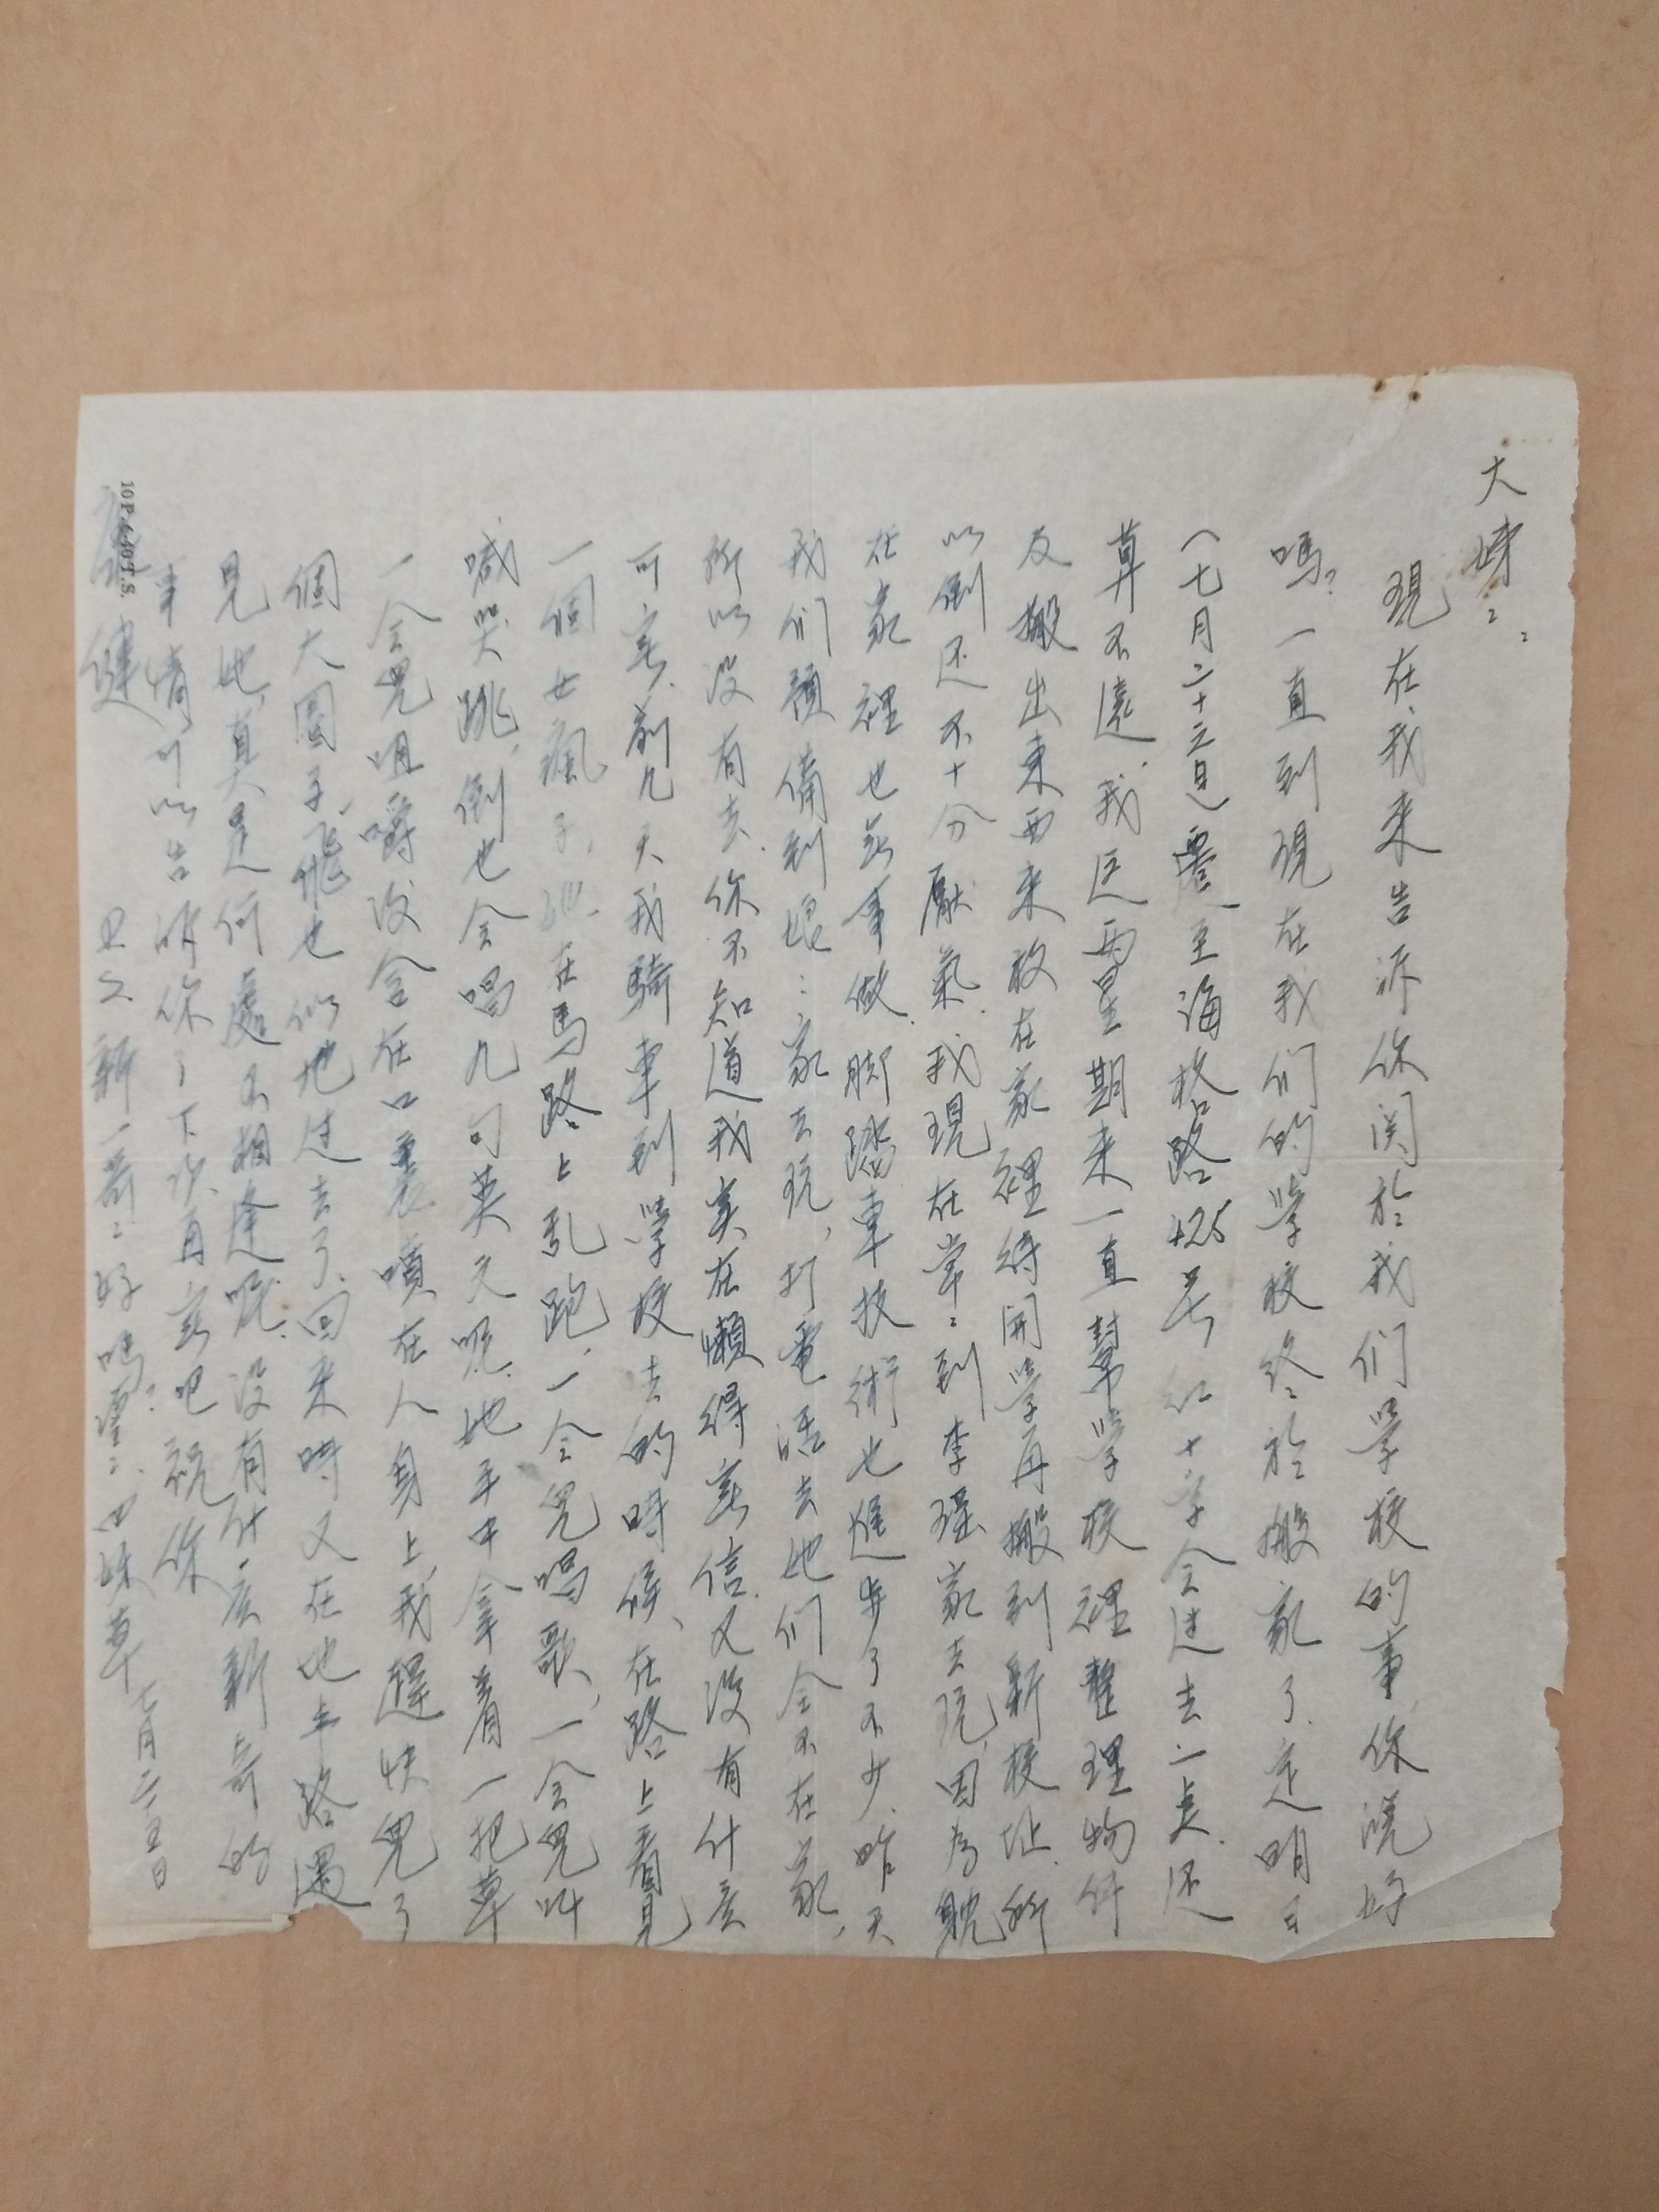 大姊：：
現在我来告訴你関於我们學校的事,你說好
嗎？一直到現在我们的學校终於搬家了.定明日
(七月二十三日)遷至海格路425号 红十字会过去一点.还
算不遠.我這两星期来一直幫學校裡整理物件
及搬出東西来放在家裡待開學再搬到新校址.所
以倒还不十分厭氣.我現在常：到李瑶家去玩,因为躭
在家裡也無事做.脚踏車技術也進步了不少.昨天
我们預備到 家去玩,打電話去她们全不在家,
所以没有去.你不知道我实在懶得寫信.又没有什么
可寫.前几天我騎車到學校去的時候、在路上看見
一個女瘋子,她在馬路上乱跑,一会兒唱歌,一会兒叫
喊哭跳,倒也会唱几句英文呢.她手中拿着一把草
一会兒咀嚼没含在口裏噴在人身上,我趕快兜了
個大圈子,飛也似地过去了.回来時又在半路遇
見她,真是何處不相逢呢.没有什么新奇的
事情可以告訴你了下次再談吧祝你
康健
新一哥：好嗎？ 四妹草 七月二五日
10P.6-40T.S.